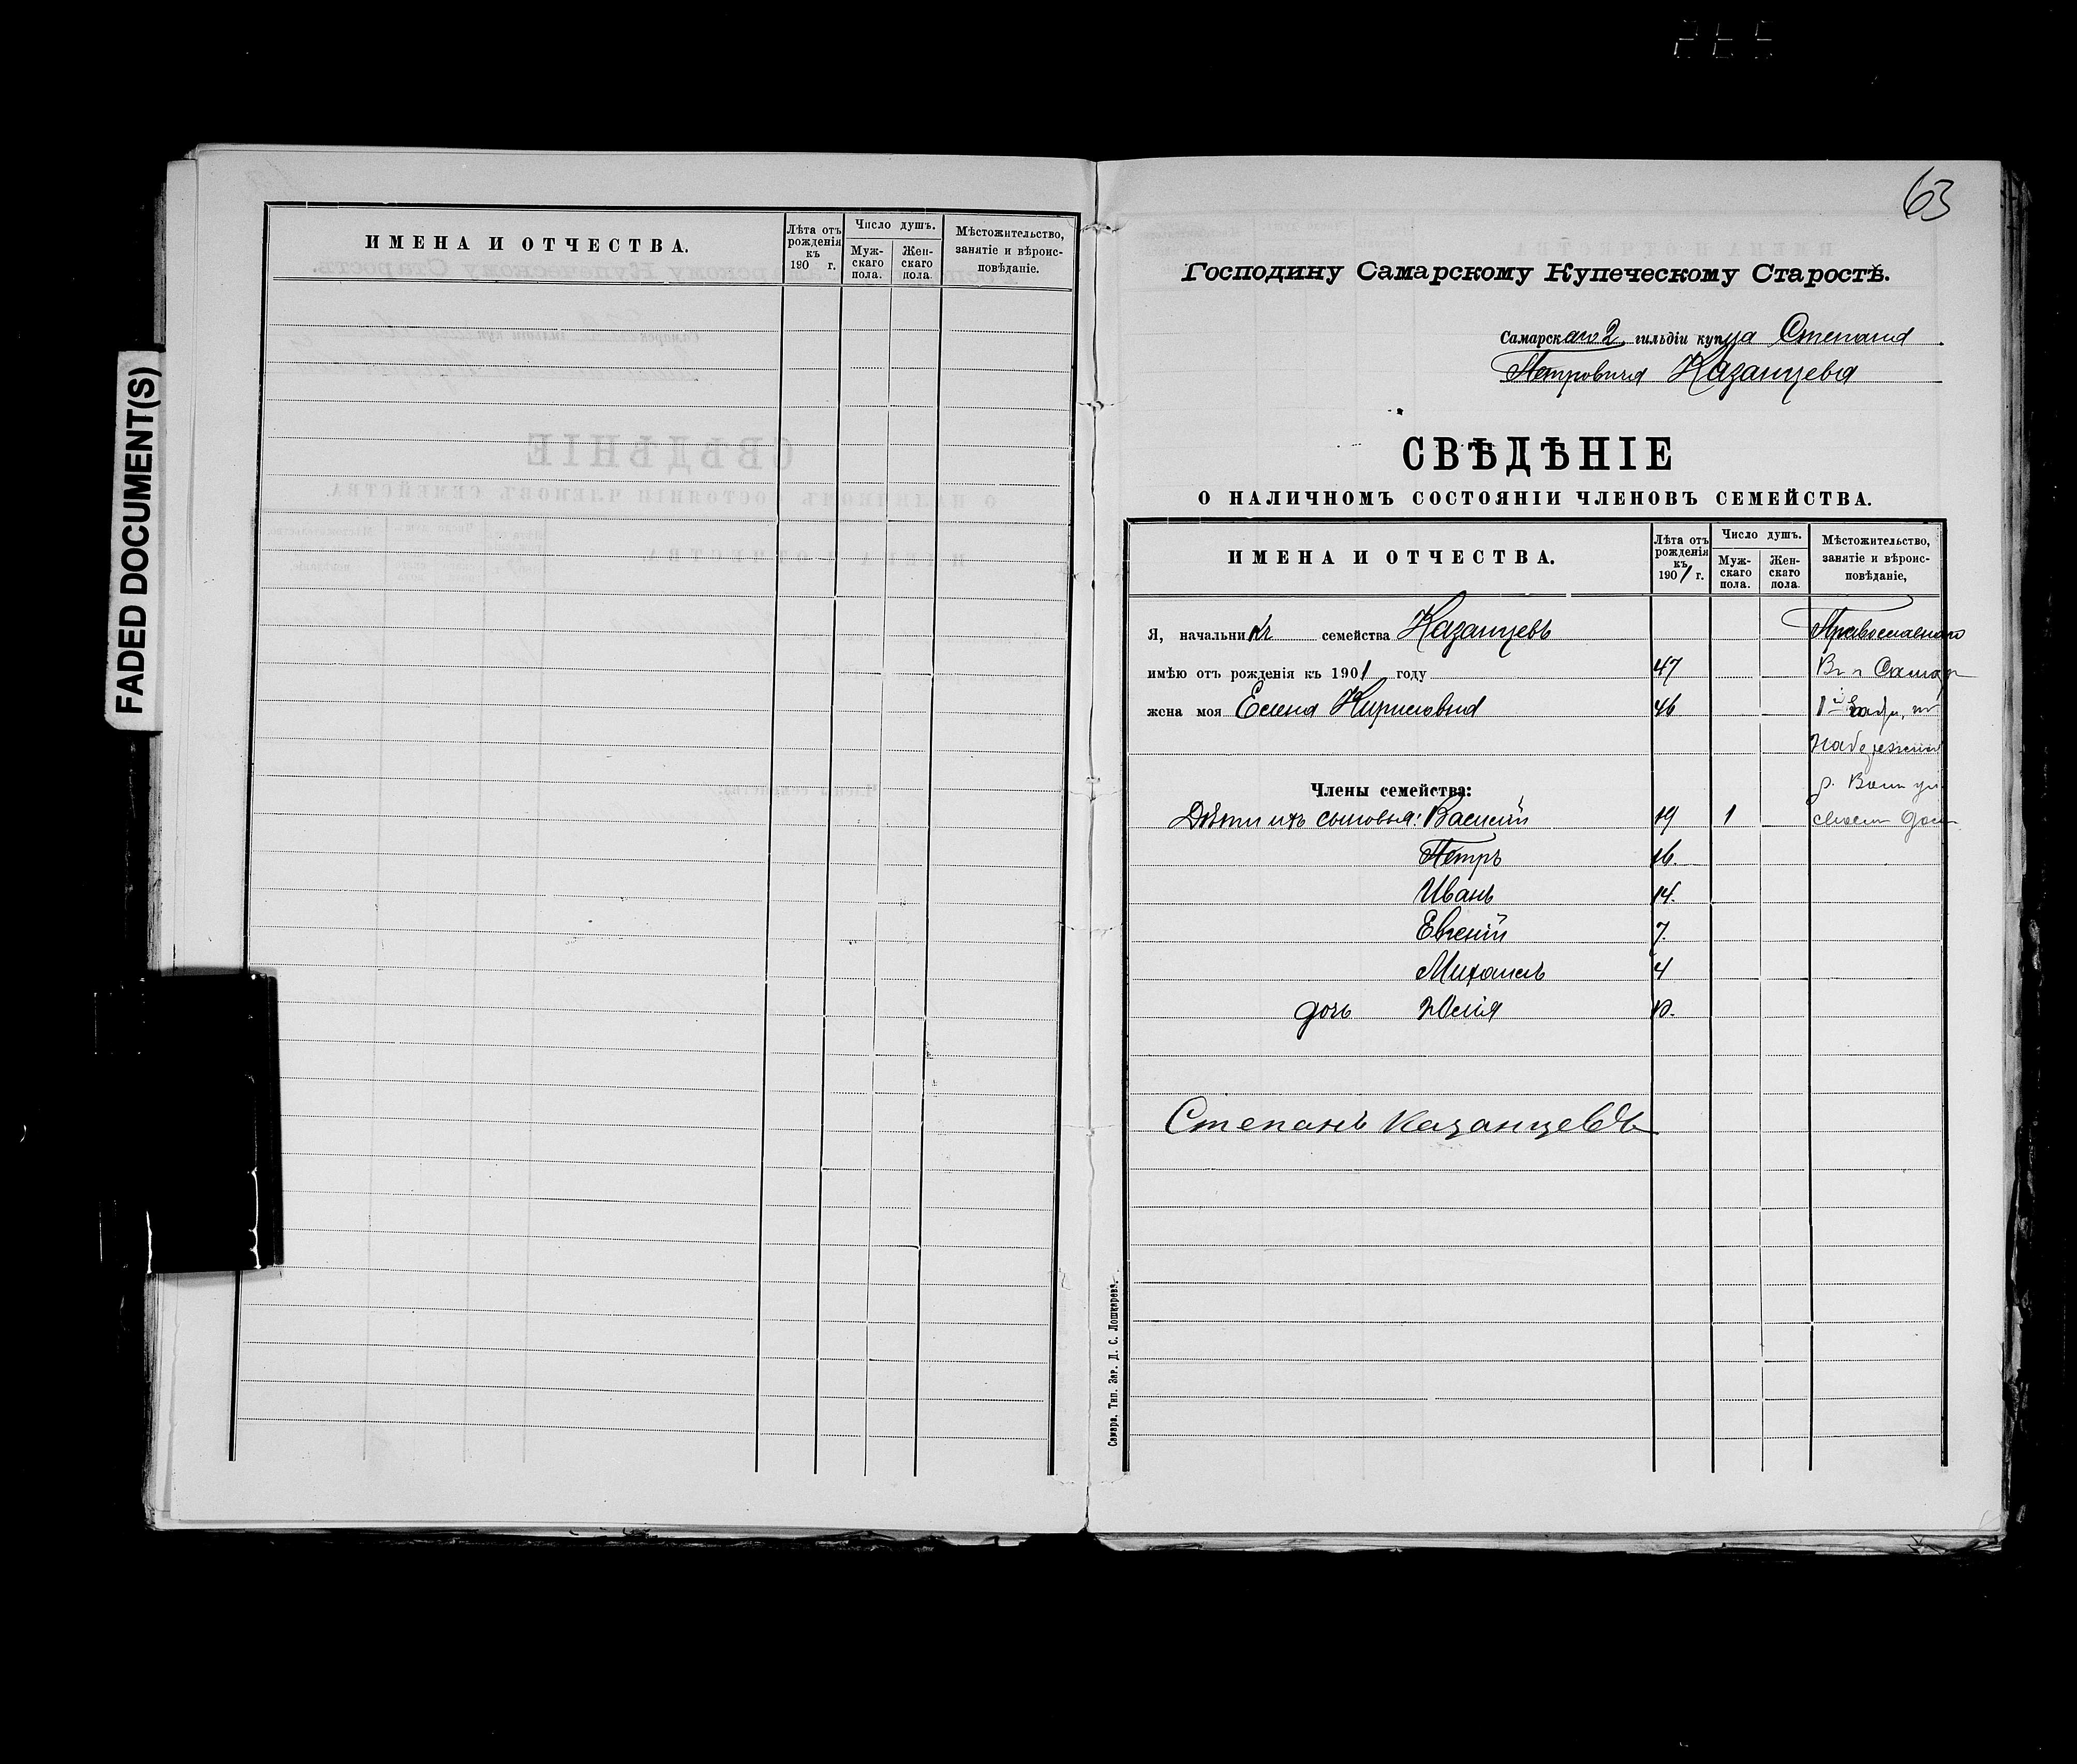 FADED DOCUMENT(S)
ИМЕНА И ОТЧЕСТВА.
Лѣта отъ рожденія къ 190 г.
Число душъ.
Мужскаго пола.
Женскаго пола.
Мѣстожительство, занятіе и вѣроисповѣданіе.
63
Господину Самарскому Купеческому Старостѣ.
Самарскаго 2 гильдіи купца Степана
Петровича Казанцева
СВѢДѢНІЕ
О НАЛИЧНОМЪ СОСТОЯНІИ ЧЛЕНОВЪ СЕМЕЙСТВА.
ИМЕНА И ОТЧЕСТВА.
Лѣта отъ рожденія къ 1901 г.
Число душъ.
Муж-скаго пола.
Жен-скаго пола.
Мѣстожительство, занятіе и вѣроис-повѣданіе,
Я, начальникъ семейства Казанцевъ Православнаго
имѣю отъ рожденія къ 1901 году 47 Въ г Самар
жена моя Елена Кириловна 46 1й
Набережн
Члены семейства: р. Волги
Дѣти ихъ сыновья: Василій 19 1 своем дом
Петръ 16.
Иванъ 14.
Евгеній 7.
Михаилъ 4
дочь Юлія 10.
Степанъ Казанцевъ
Самара. Тип. Зар. Д. С. Лошкарева.